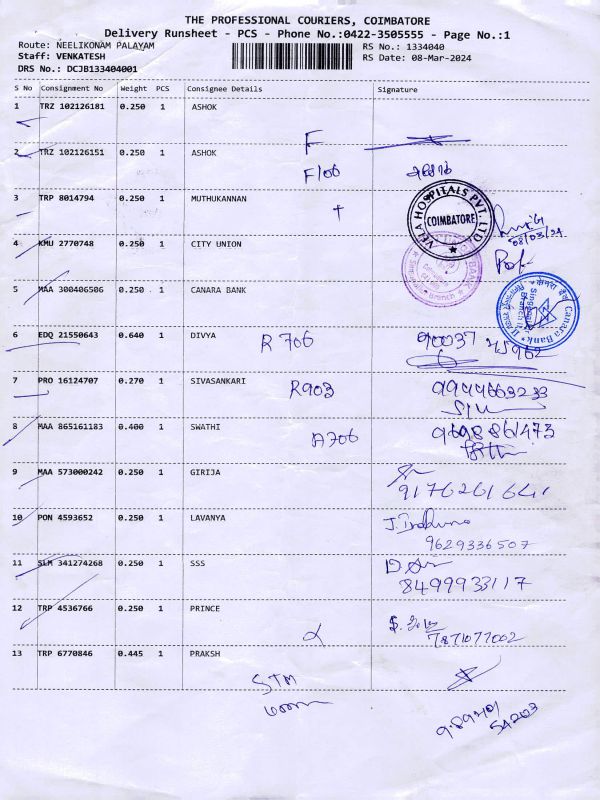 THE PROFESSIONAL COURIERS, COIMBATORE
Delivery Runsheet - PCS - Phone No.:0422-3505555 - Page No.:1
Route: NEELIKONAM PALAYAM
RS No.: 1334040
Staff: VENKATESH
RS Date: 08-Mar-2024
DRS No.: DCJB133404001
S No Consignment No Weight PCS Consignee Details Signature
1 TRZ 102126181 0.250 1 ASHOK
F
2 TRZ 102126151 0.250 1 ASHOK
F106
3 TRP 8014794 0.250 1 MUTHUKANNAN
VELA HOSPITALS PVT. LTD
COIMBATORE
08/03/24
4 KMU 2770748 0.250 1 CITY UNION
5 MAA 300406506 0.250 1 CANARA BANK
Canara Bank
6 EDQ 21550643 0.640 1 DIVYA R 706 90037 45962
7 PRO 16124707 0.270 1 SIVASANKARI R903 9944663233
8 MAA 865161183 0.400 1 SWATHI A706 9698861473
9 MAA 573000242 0.250 1 GIRIJA
10 PON 4593652 0.250 1 LAVANYA
9629336507
11 SLM 341274268 0.250 1 SSS
8499933117
12 TRP 4536766 0.250 1 PRINCE
7871077002
13 TRP 6770846 0.445 1 PRAKSH
STM